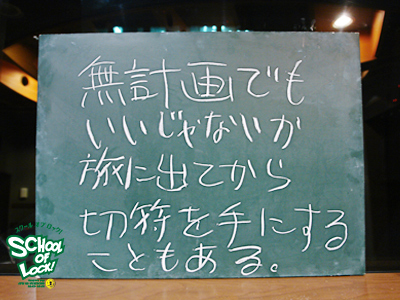 無計画でも
いいじゃないか
旅に出てから
切符を手にする
こともある。
SCHOOL
OF
LOCK!